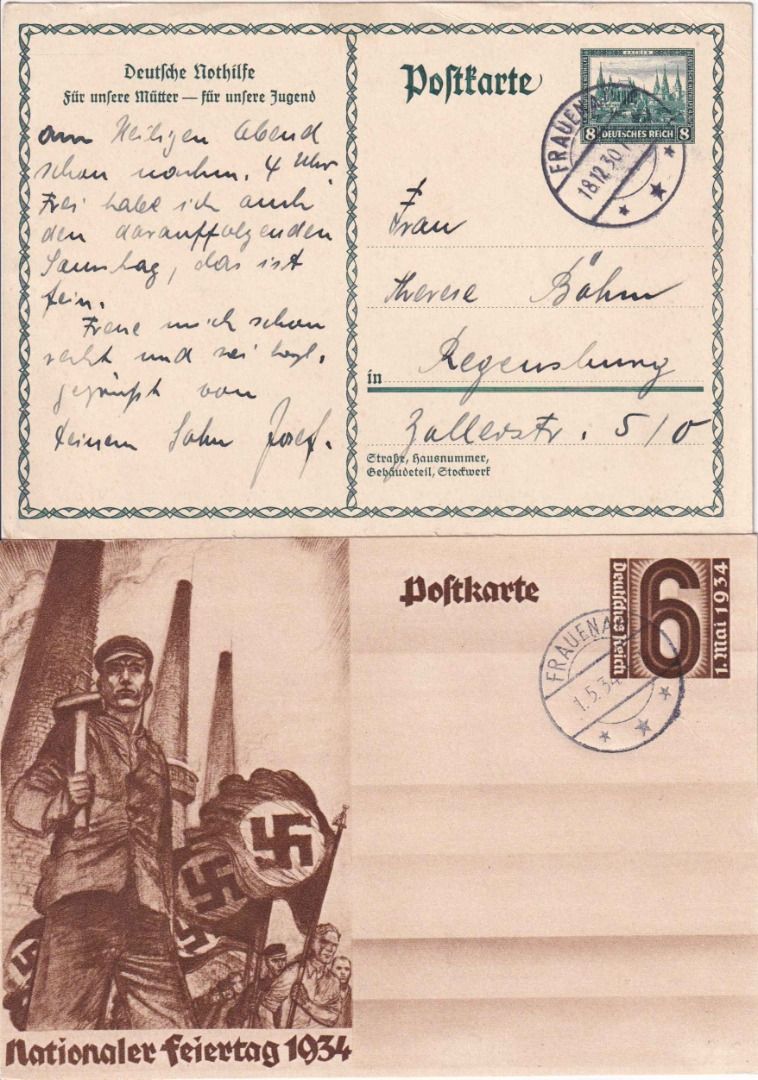 Deutsche Nothilfe
Für unsere Mütter — für unsere Jugend
am Heiligen Abend
schon nachm. 4 Uhr.
Frei habe ich auch
den darauffolgenden
Samstag, das ist
fein.
Freue mich schon
recht und sei herzl.
gegrüßt von
deinem Sohn Josef.
Postkarte
AACHEN
8 DEUTSCHES REICH 8
18.12.30
Frau
Therese Böhm
in Regensburg
Zollerstr. 5/0
Straße, Hausnummer,
Gebäudeteil, Stockwerk
Postkarte
Deutsches Reich
6
1. Mai 1934
1.5.34
Nationaler Feiertag 1934